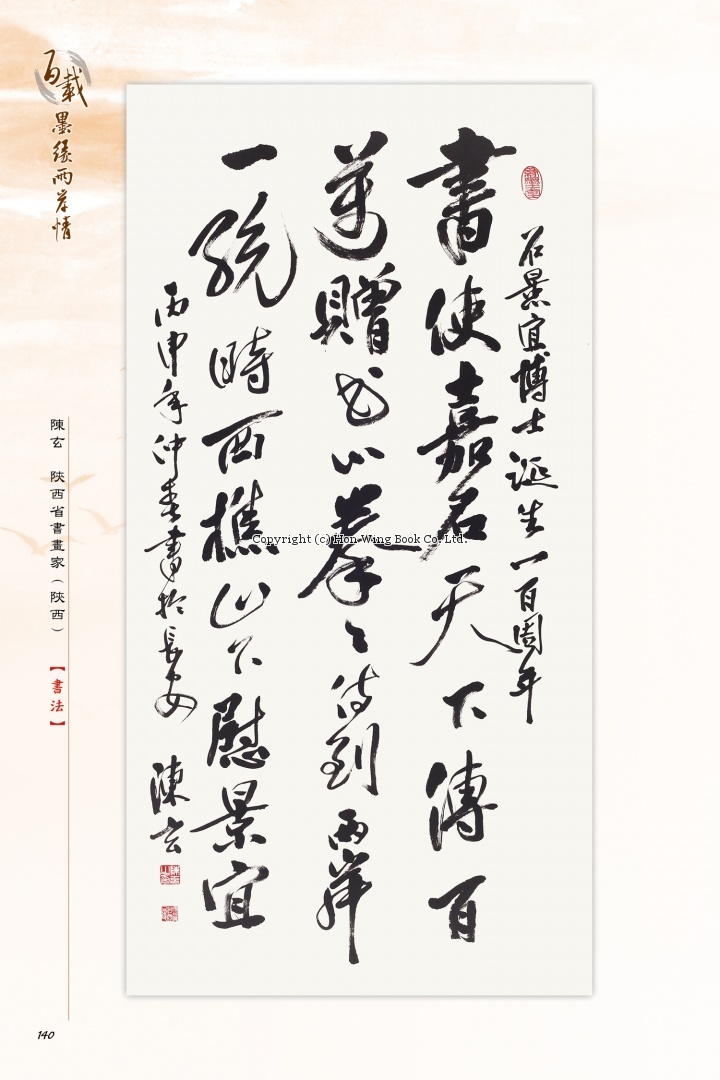 百載
墨緣兩岸情
石景宜博士誕生一百周年
書使嘉石天下傳百
萬贈書心拳々待到兩岸
一統時西樵山下慰景宜
丙申年仲春書於長安
陳玄
陳玄 陝西省書畫家(陝西)
【書法】
Copyright (c) Hon Wing Book Co. Ltd.
140